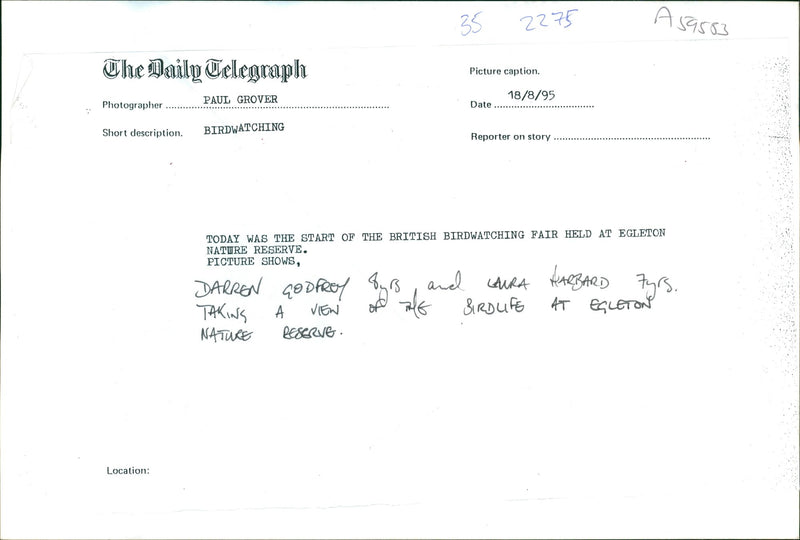 35 2275 A59503
The Daily Telegraph
Picture caption.
Photographer PAUL GROVER
Date 18/8/95
Short description. BIRDWATCHING
Reporter on story
TODAY WAS THE START OF THE BRITISH BIRDWATCHING FAIR HELD AT EGLETON
NATURE RESERVE.
PICTURE SHOWS,
DARREN GODFREY 8yrs, and LAURA HARBARD 7yrs.
TAKING A VIEW OF THE BIRDLIFE AT EGLETON
NATURE RESERVE.
Location: